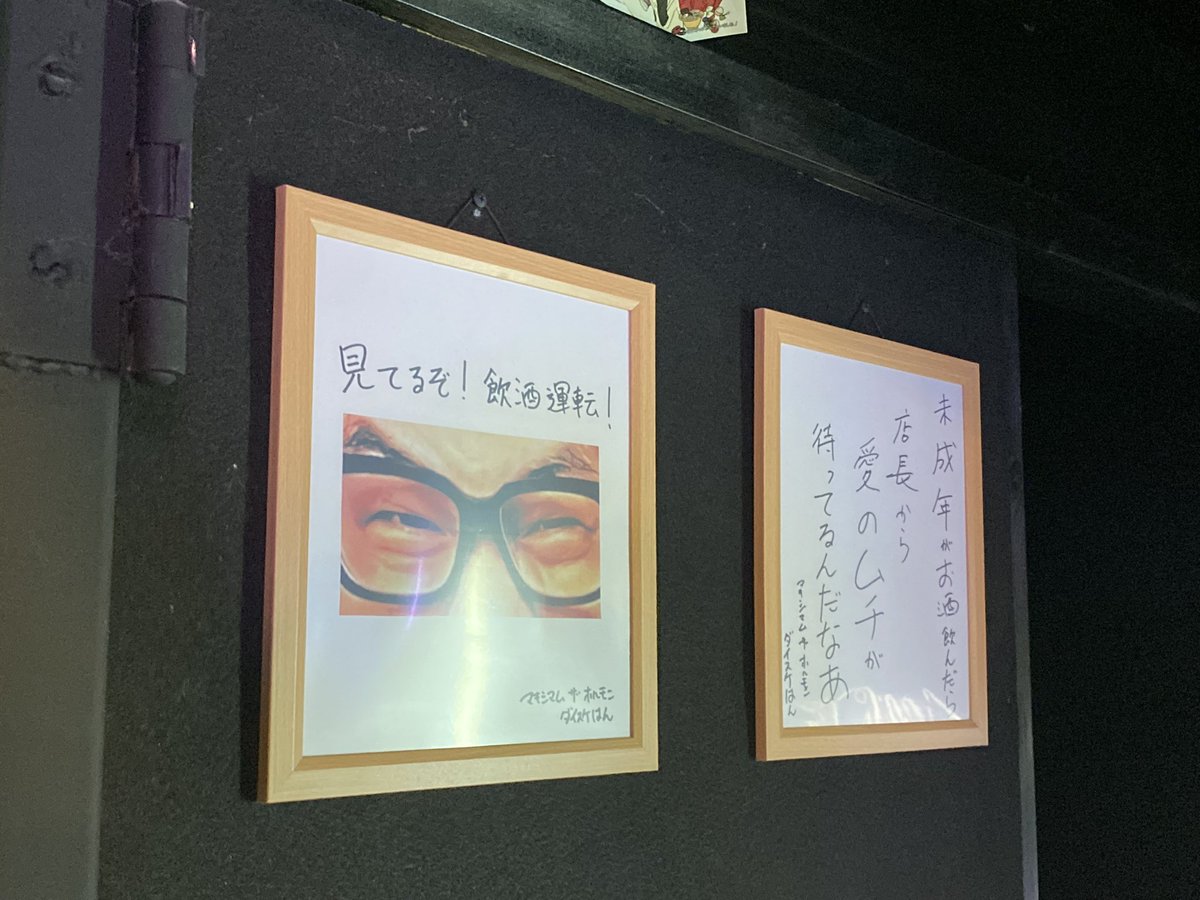 見てるぞ！飲酒運転！
マキシマム ザ ホルモン
ダイスケはん
未成年がお酒飲んだら
店長から
愛のムチが
待ってるんだなあ
マキシマム ザ ホルモン
ダイスケはん